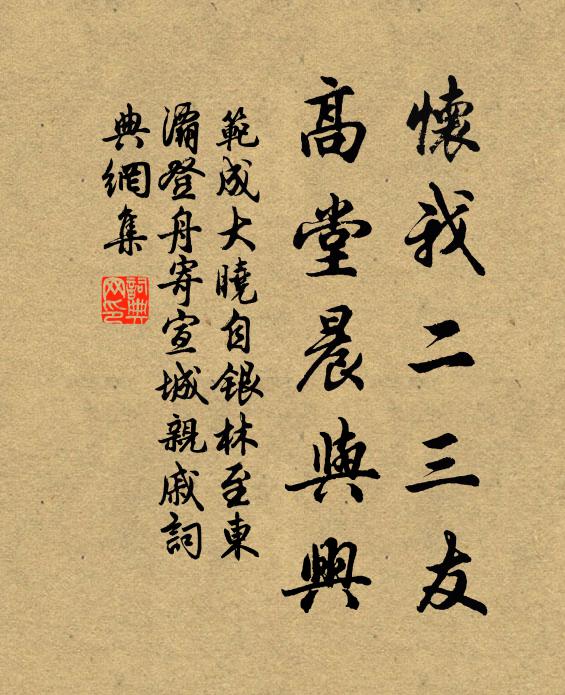 懷我二三友
高堂晨與興
範成大曉自銀林至東
灞登舟寄宣城親戚詞
典網集
詞典網印